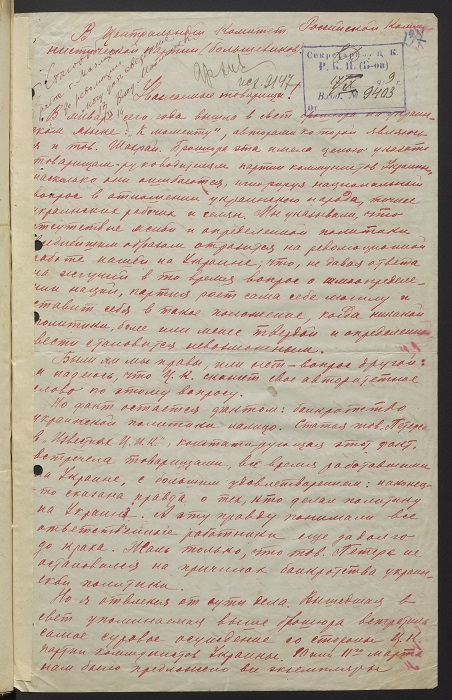 В Центральный Комитет Российской Комму-
нистической Партии (большевиков).
197
Секретариат Ц. К.
Р. К. П. (Б-ов)
9
Вход. № 9403
От
Архив
исх. 9147
Уважаемые товарищи!
В январе сего года вышла в свет брошюра на украин-
ском языке: "К моменту", авторами которой являюсь
я и тов. Шахрай. Брошюра эта имела целью указать
товарищам-руководителям партии коммунистов Украины,
насколько они ошибаются, игнорируя национальный
вопрос в отношении украинского народа, точнее
украинских рабочих и селян. Мы указывали, что
отсутствие ясной и определенной политики
образом отзовится на революционной
работе нашей на Украине; что, не давая ответа
на жгучий в то время вопрос о самоопределе-
нии наций, партия роет сама себе могилу и
ставит себя в такое положение, когда никакой
политики, более или менее твердой и определенной
вести становится невозможным.
Были ли мы правы, или нет - вопрос другой:
я надеюсь, что Ц. К. скажет свое авторитетное
слово по этому вопросу.
Но факт остается фактом: банкротство
украинской политики налицо. Статья тов. Петерса
в "Известиях Ц.И.К.", констатирующая этот факт,
встречена товарищами, все время работавшими
на Украине, с большим удовлетворением: наконец-
то сказана правда о тех, кто делал политику
на Украине. А эту правду понимали все
ответственные работники еще задолго
до краха. Жаль только, что тов. Петерс не
остановился на причинах банкротства украин-
ской политики.
Но я отвлекся от сути дела. Вышедшая в
свет упоминаемая выше брошюра встретила
самое суровое осуждение со стороны Ц.К.
партии коммунистов Украины. 11го марта
нам было предложено все экземпляры